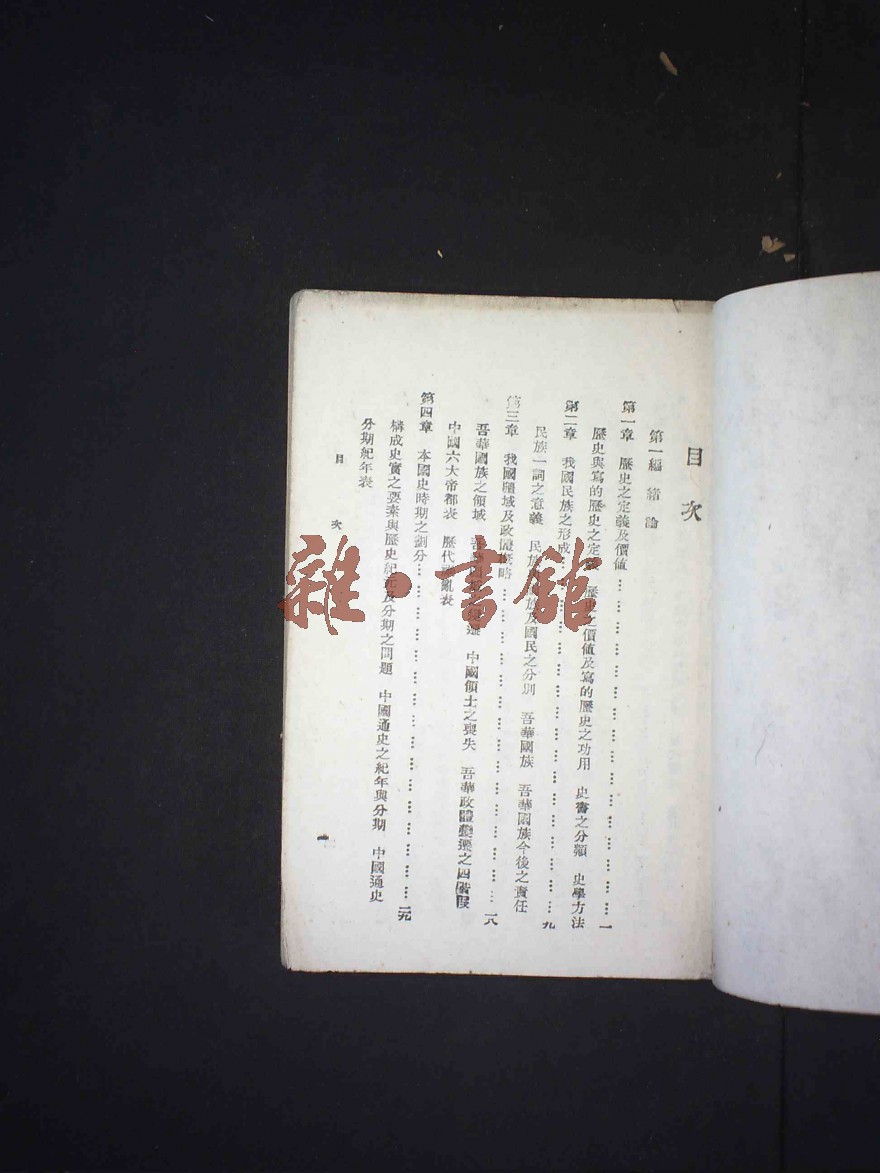 目次
第一編 緒論
第一章 歷史之定義及價値………一
歷史與寫的歷史之定 歷史之價値及寫的歷史之功用 史書之分類 史學方法
第二章 我國民族之形成………九
民族一詞之意義 民族 族及國民之分別 吾華國族 吾華國族今後之責任
第三章 我國疆域及政體 略………一八
吾華國族之領域 吾華 遷 中國領土之喪失 吾華政體變遷之四階段
中國六大帝都表 歷代 亂表
第四章 本國史時期之劃分………二九
構成史實之要素與歷史紀元及分期之問題 中國通史之紀年與分期 中國通史
分期紀年表
目次
一
雜·書館